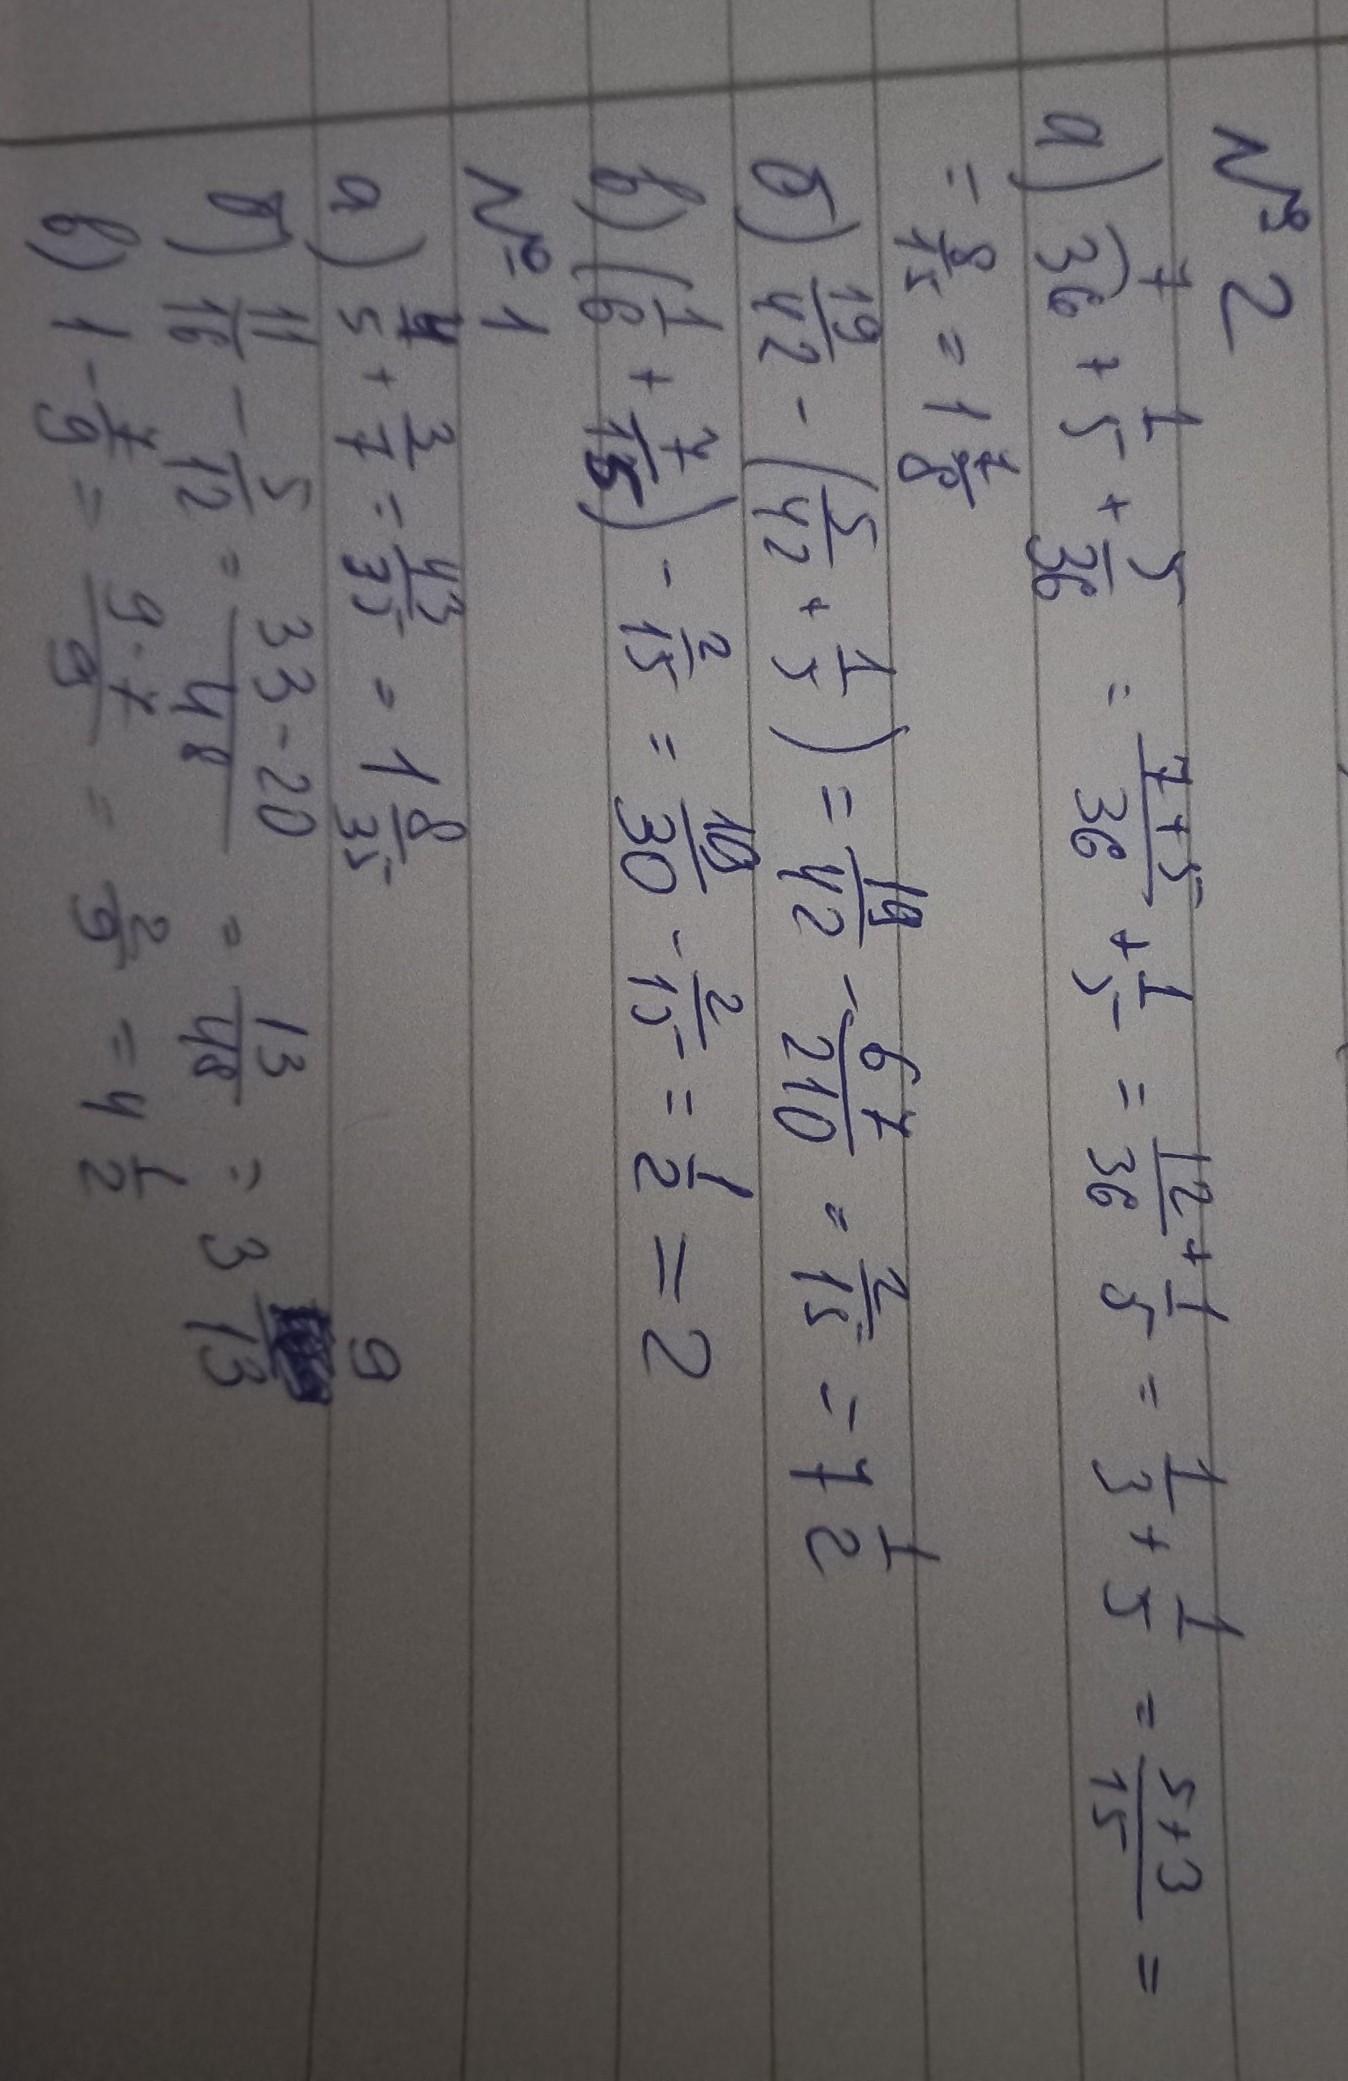 № 2
а) 7/36 + 1/5 + 5/36 = (7+5)/36 + 1/5 = 12/36 + 1/5 = 1/3 + 1/5 = (5+3)/15 =
= 8/15 = 1 7/8
б) 19/42 - (5/42 + 1/5) = 19/42 - 67/210 = 2/15 = 7 1/2
в) (1/6 + 7/15) - 2/15 = 19/30 - 2/15 = 1/2 = 2
№ 1
а) 4/5 + 3/7 = 43/35 = 1 8/35
б) 11/16 - 5/12 = (33-20)/48 = 13/48 = 3 9/13
в) 1 - 7/9 = (9-7)/9 = 2/9 = 4 1/2